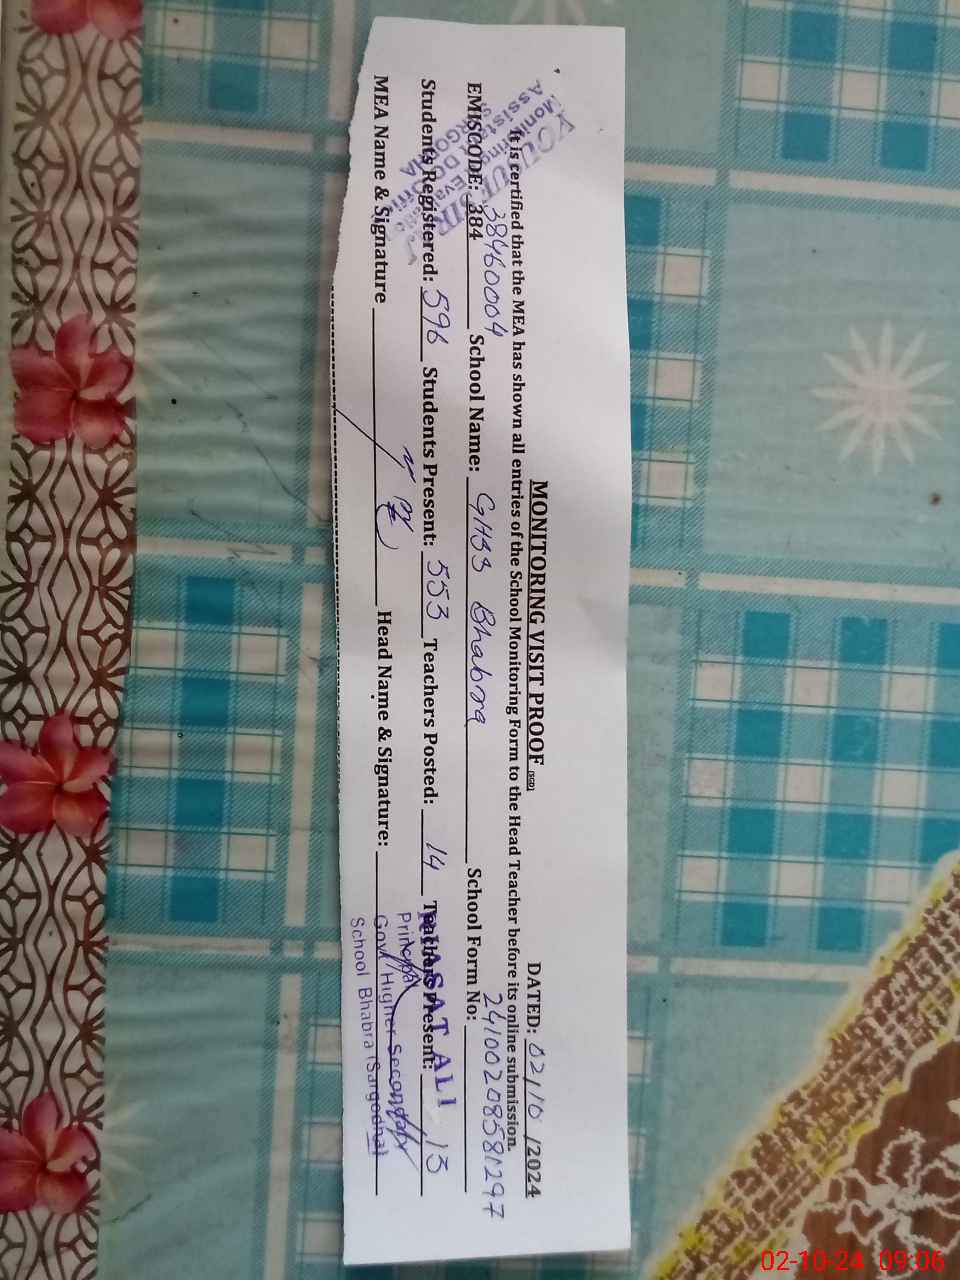 MONITORING VISIT PROOF (SGD) DATED: 02/10/2024
It is certified that the MEA has shown all entries of the School Monitoring Form to the Head Teacher before its online submission.
EMISCODE: 384 38460004 School Name: GHSS Bhabra School Form No: 24100208581297
Students Registered: 596 Students Present: 553 Teachers Posted: 14 Teachers Present: 13
MEA Name & Signature Head Name & Signature:
RIASAT ALI
Principal
Govt Higher Secondary
School Bhabra (Sargodha)
02-10-24 09:06